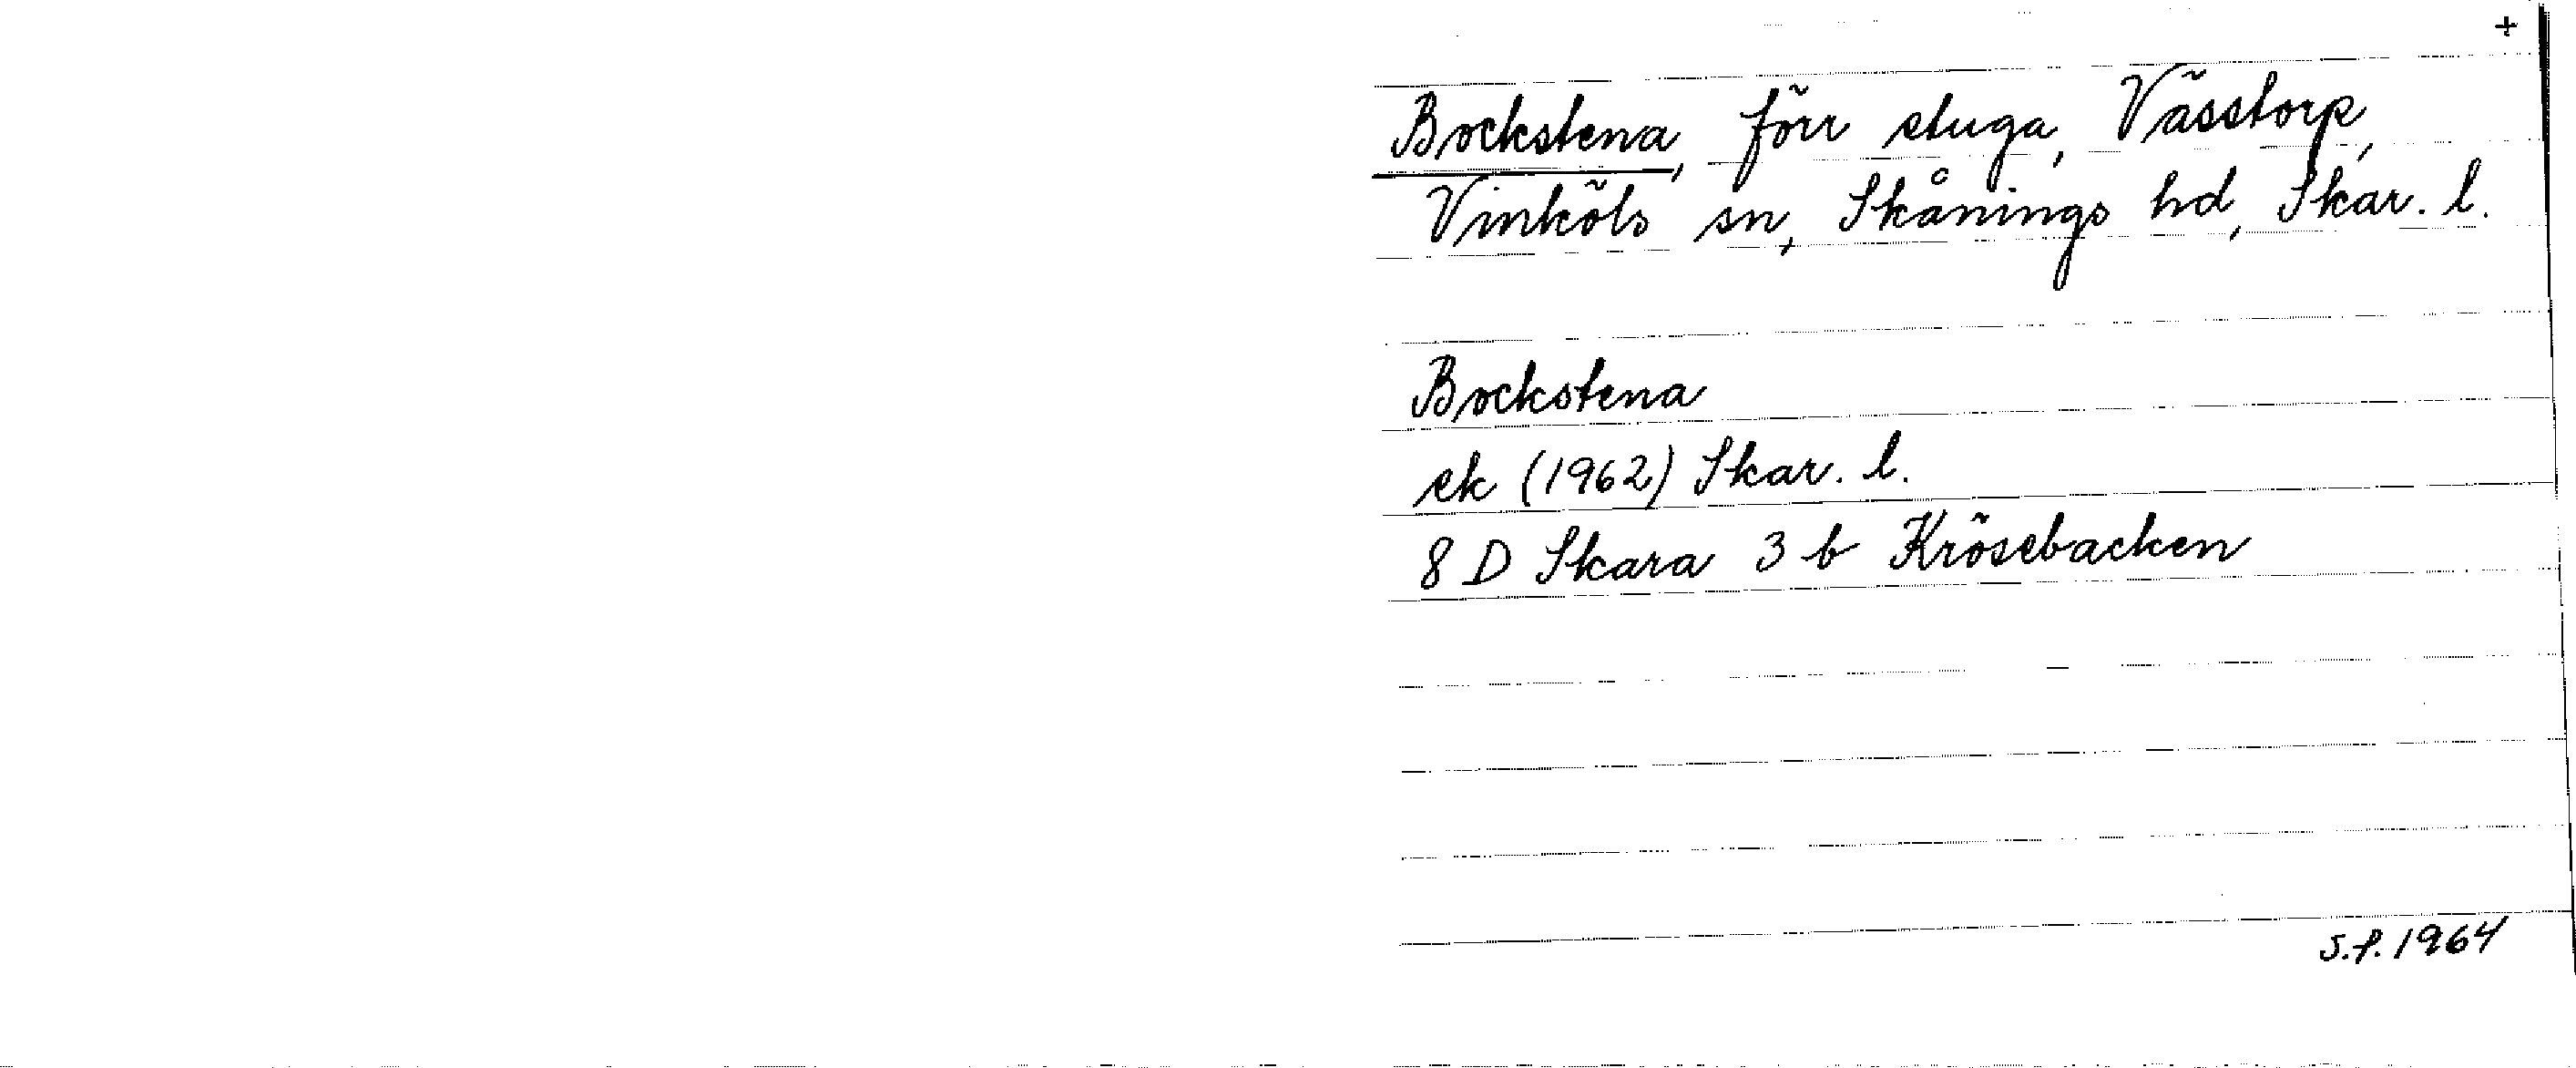 +
Bockstena, förr stuga, Västorp,
Vinköls sn, Skånings hd, Skar. l.
Bockstena
ek (1962) Skar. l.
8 D Skara 3 b Krösebacken
1964